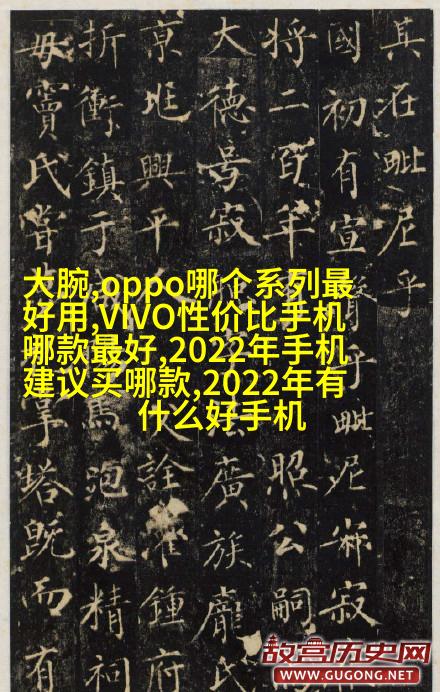 其在毗尼乎
國初有宣
于毗尼
寂
将二百年
照公嗣
大德号寂
廣族龐氏
京兆興平
詮
鍾府
折衝鎮于
馬
泉精祠
毋竇氏嘗
塔既而有
大腕,oppo哪个系列最
好用,VIVO性价比手机
哪款最好,2022年手机
建议买哪款,2022年有
什么好手机
故宫历史网
WWW.GUGONG.NET